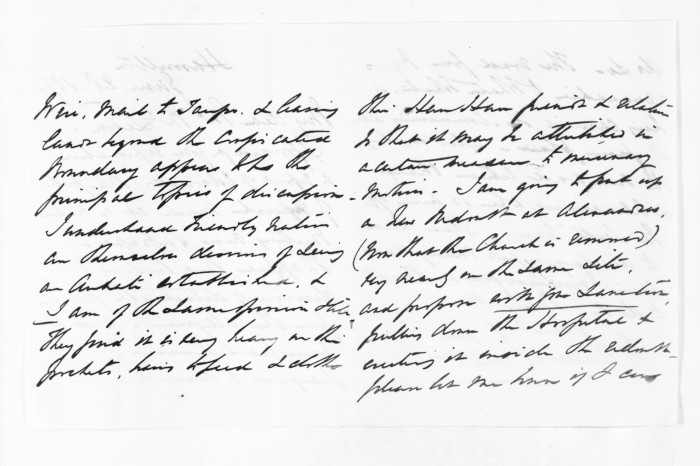 Weir, Mail to Taupo & leasing
lands beyond the confiscated
boundary appears to be the
principal topics of discussion.
I understand Friendly Natives
are themselves desirous of seeing
an Aukati established, &
I am of the same opinion still
They find it is very heavy on their
pockets, having to feed & clothe
their Hau Hau friends & relations
so that it may be attributed in
a certain measure to mercenary
motives. I am going to put up
a New Redoubt at Alexandra,
(Now that the Church is removed)
very nearly on the same site,
and propose with your Sanction,
pulling down the Hospital &
erecting it inside the redoubt -
please let me know if I can